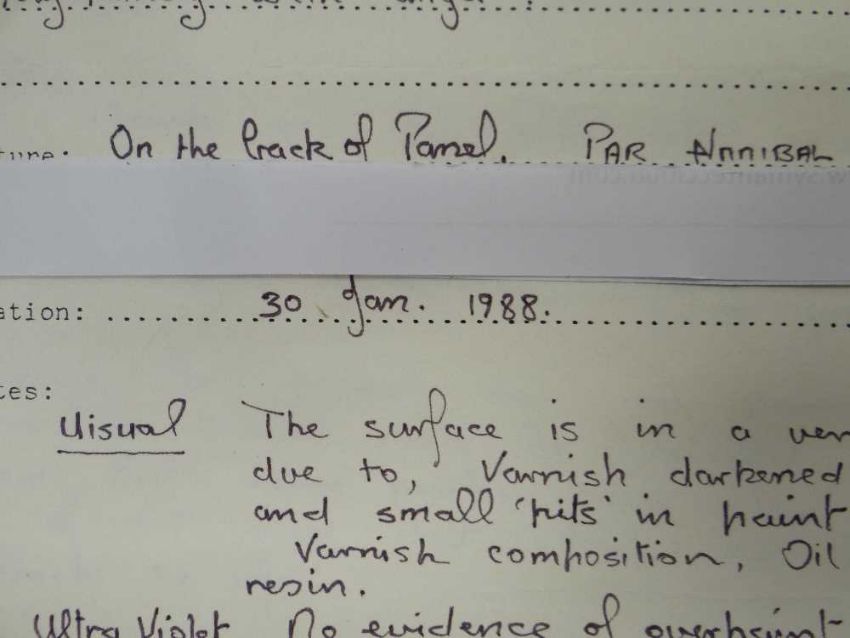 On the back of Panel. PAR ANNIBAL
ation: 30 Jan. 1988.
tes:
Visual The surface is in a ver
due to, Varnish darkened
and small 'pits' in paint
Varnish composition, Oil
resin.
Ultra Violet No evidence of overpaint